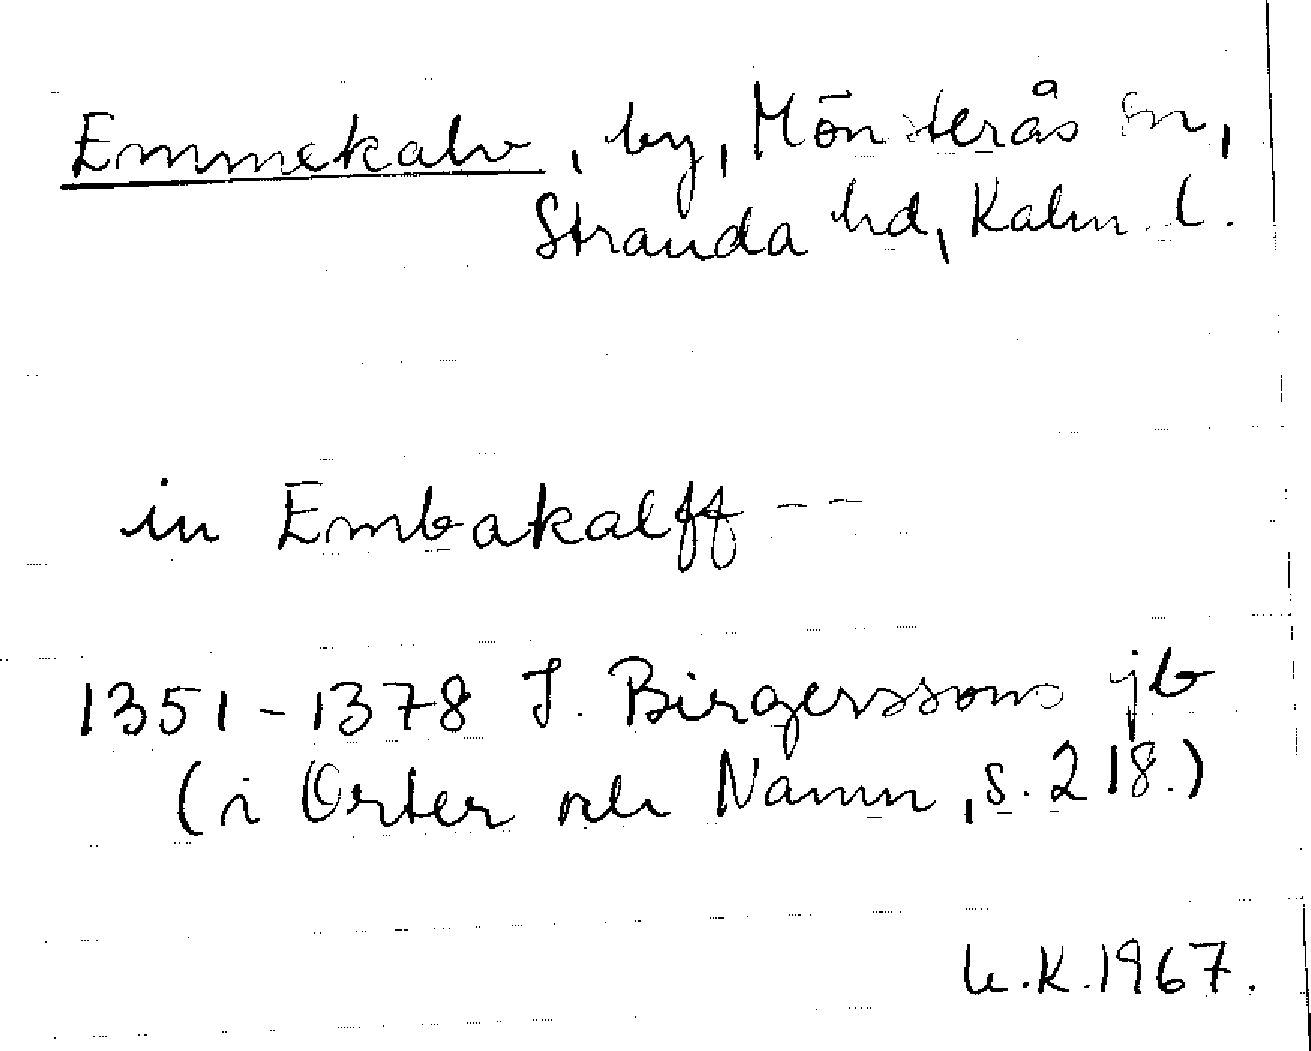 Emmekalv, by, Mönsterås sn,
Stranda hd, Kalm. l.
in Embakalff - -
1351-1378 J. Birgerssons jb
(i Orter och Namn, s. 218.)
K.1967.